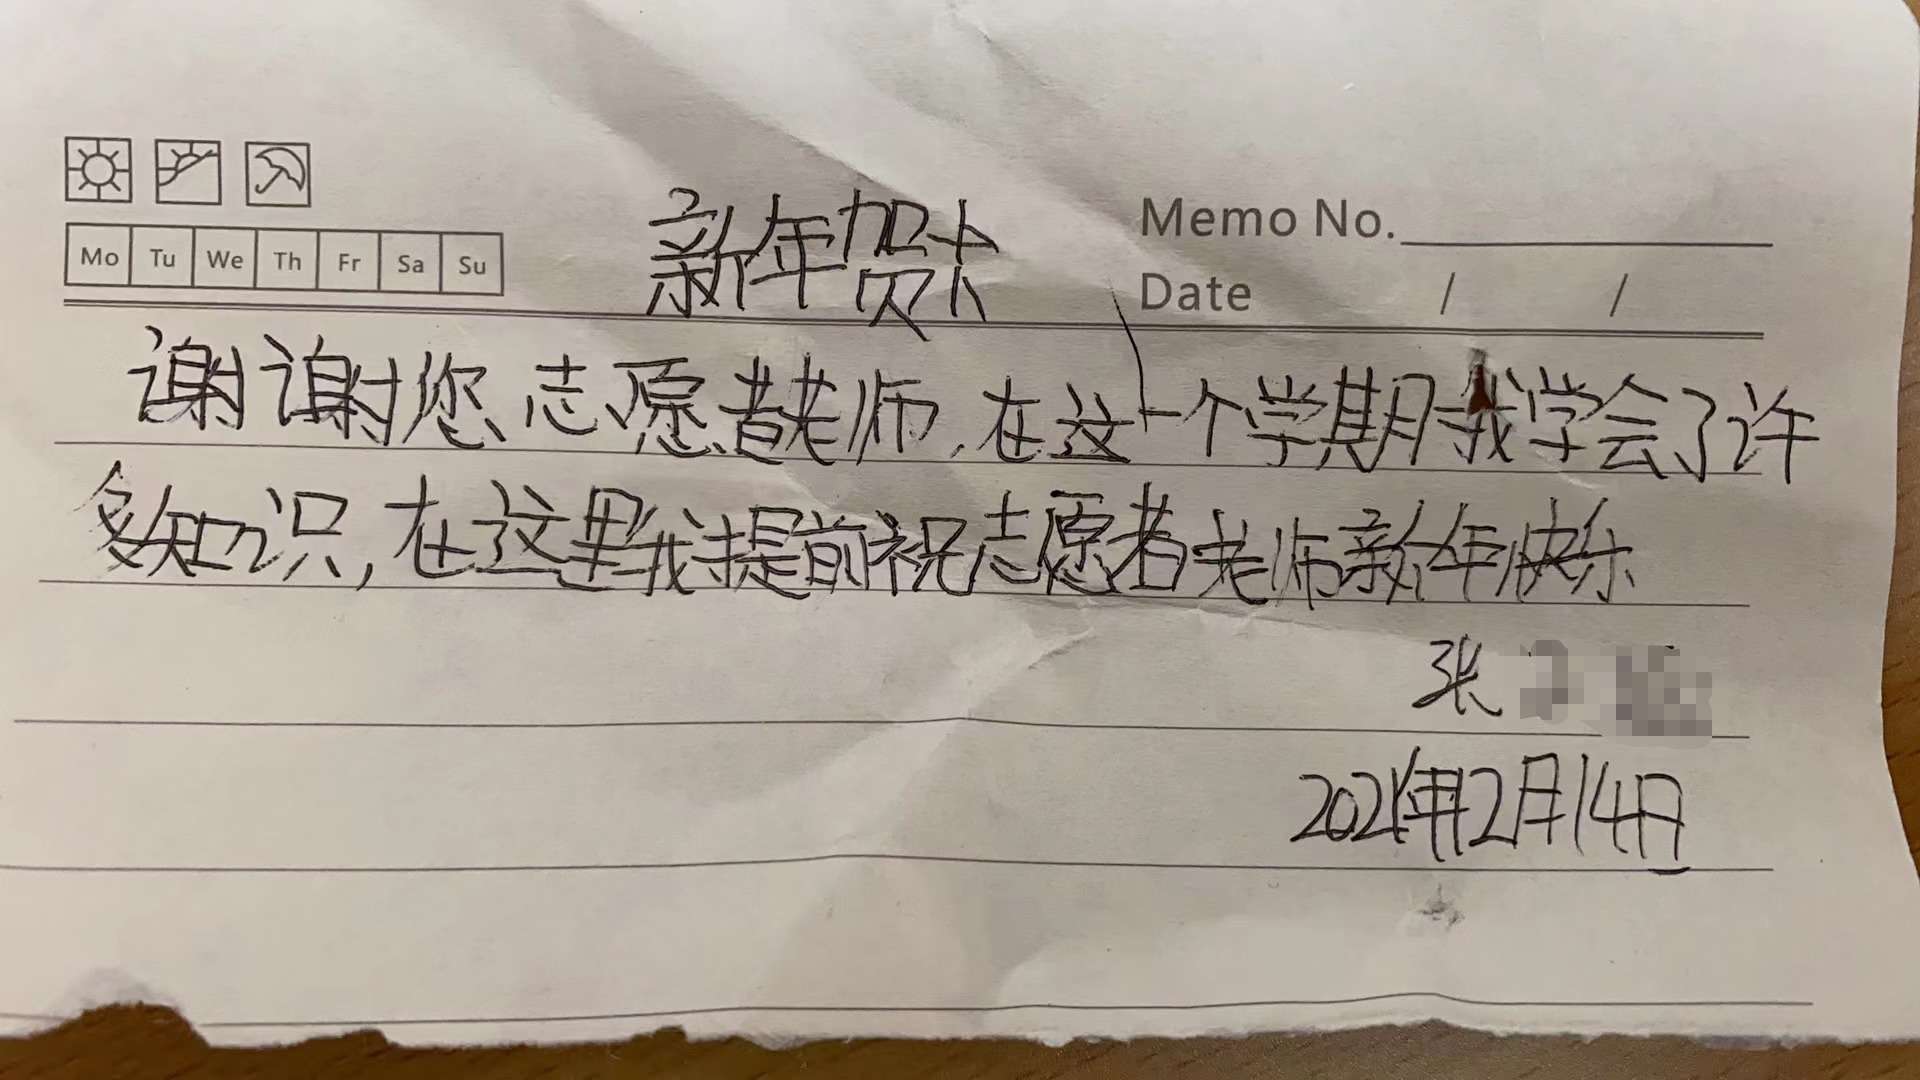 新年贺卡
Memo No.
Mo Tu We Th Fr Sa Su
Date / /
谢谢您志愿者老师,在这一个学期我学会了许
多知识,在这里我提前祝志愿者老师新年快乐
张
2021年2月14日